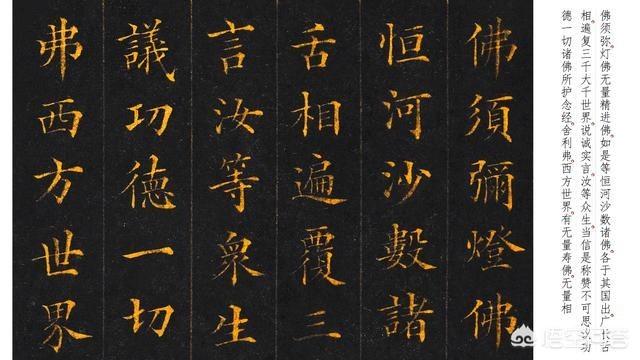 佛须弥灯佛无量精进佛。如是等恒河沙数诸佛。各于其国出广长舌
相遍复三千大千世界。说诚实言。汝等众生。当信是称赞不可思议功
德一切诸佛所护念经。舍利弗。西方世界有无量寿佛。无量相
佛須彌燈佛
恒河沙數諸
舌相遍覆三
言汝等衆生
議功德一切
弗西方世界
悟空问答